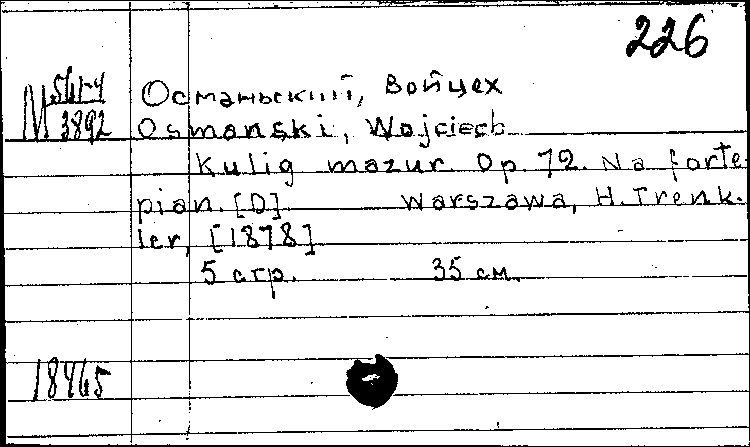 226
М 561-4
3892
Османьский, Войцех
Osmanski, Wojciech
Kulig mazur. Op. 72. Na forte
pian. [D] Warszawa, H. Trenk-
ler, [1878]
5 стр. 35 см.
18465